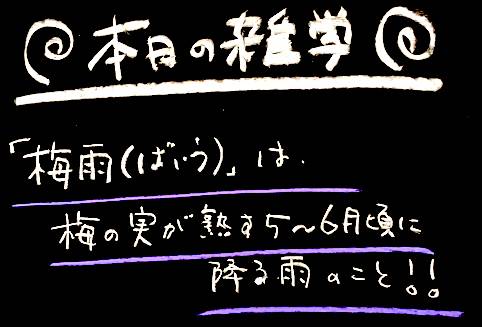 本日の雑学
「梅雨(ばいう)」は、
梅の実が熟す5〜6月頃に
降る雨のこと!!